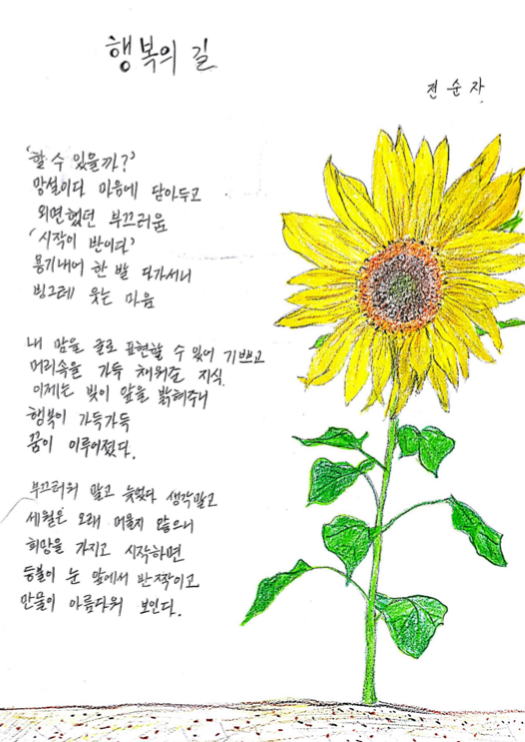 행복의 길
전순자
'할 수 있을까?'
망설이다 마음에 담아두고
외면했던 부끄러움
'시작이 반이다'
용기내어 한 발 다가서니
빙그레 웃는 마음
내 맘을 글로 표현할 수 있어 기쁘고
머리속을 가득 채워준 지식
이제는 빛이 앞을 밝혀주니
행복이 가득가득
꿈이 이루어졌다.
부끄러워 말고 늦었다 생각말고
세월은 오래 머물지 않으니
희망을 가지고 시작하면
등불이 눈 앞에서 반짝이고
만물이 아름다워 보인다.